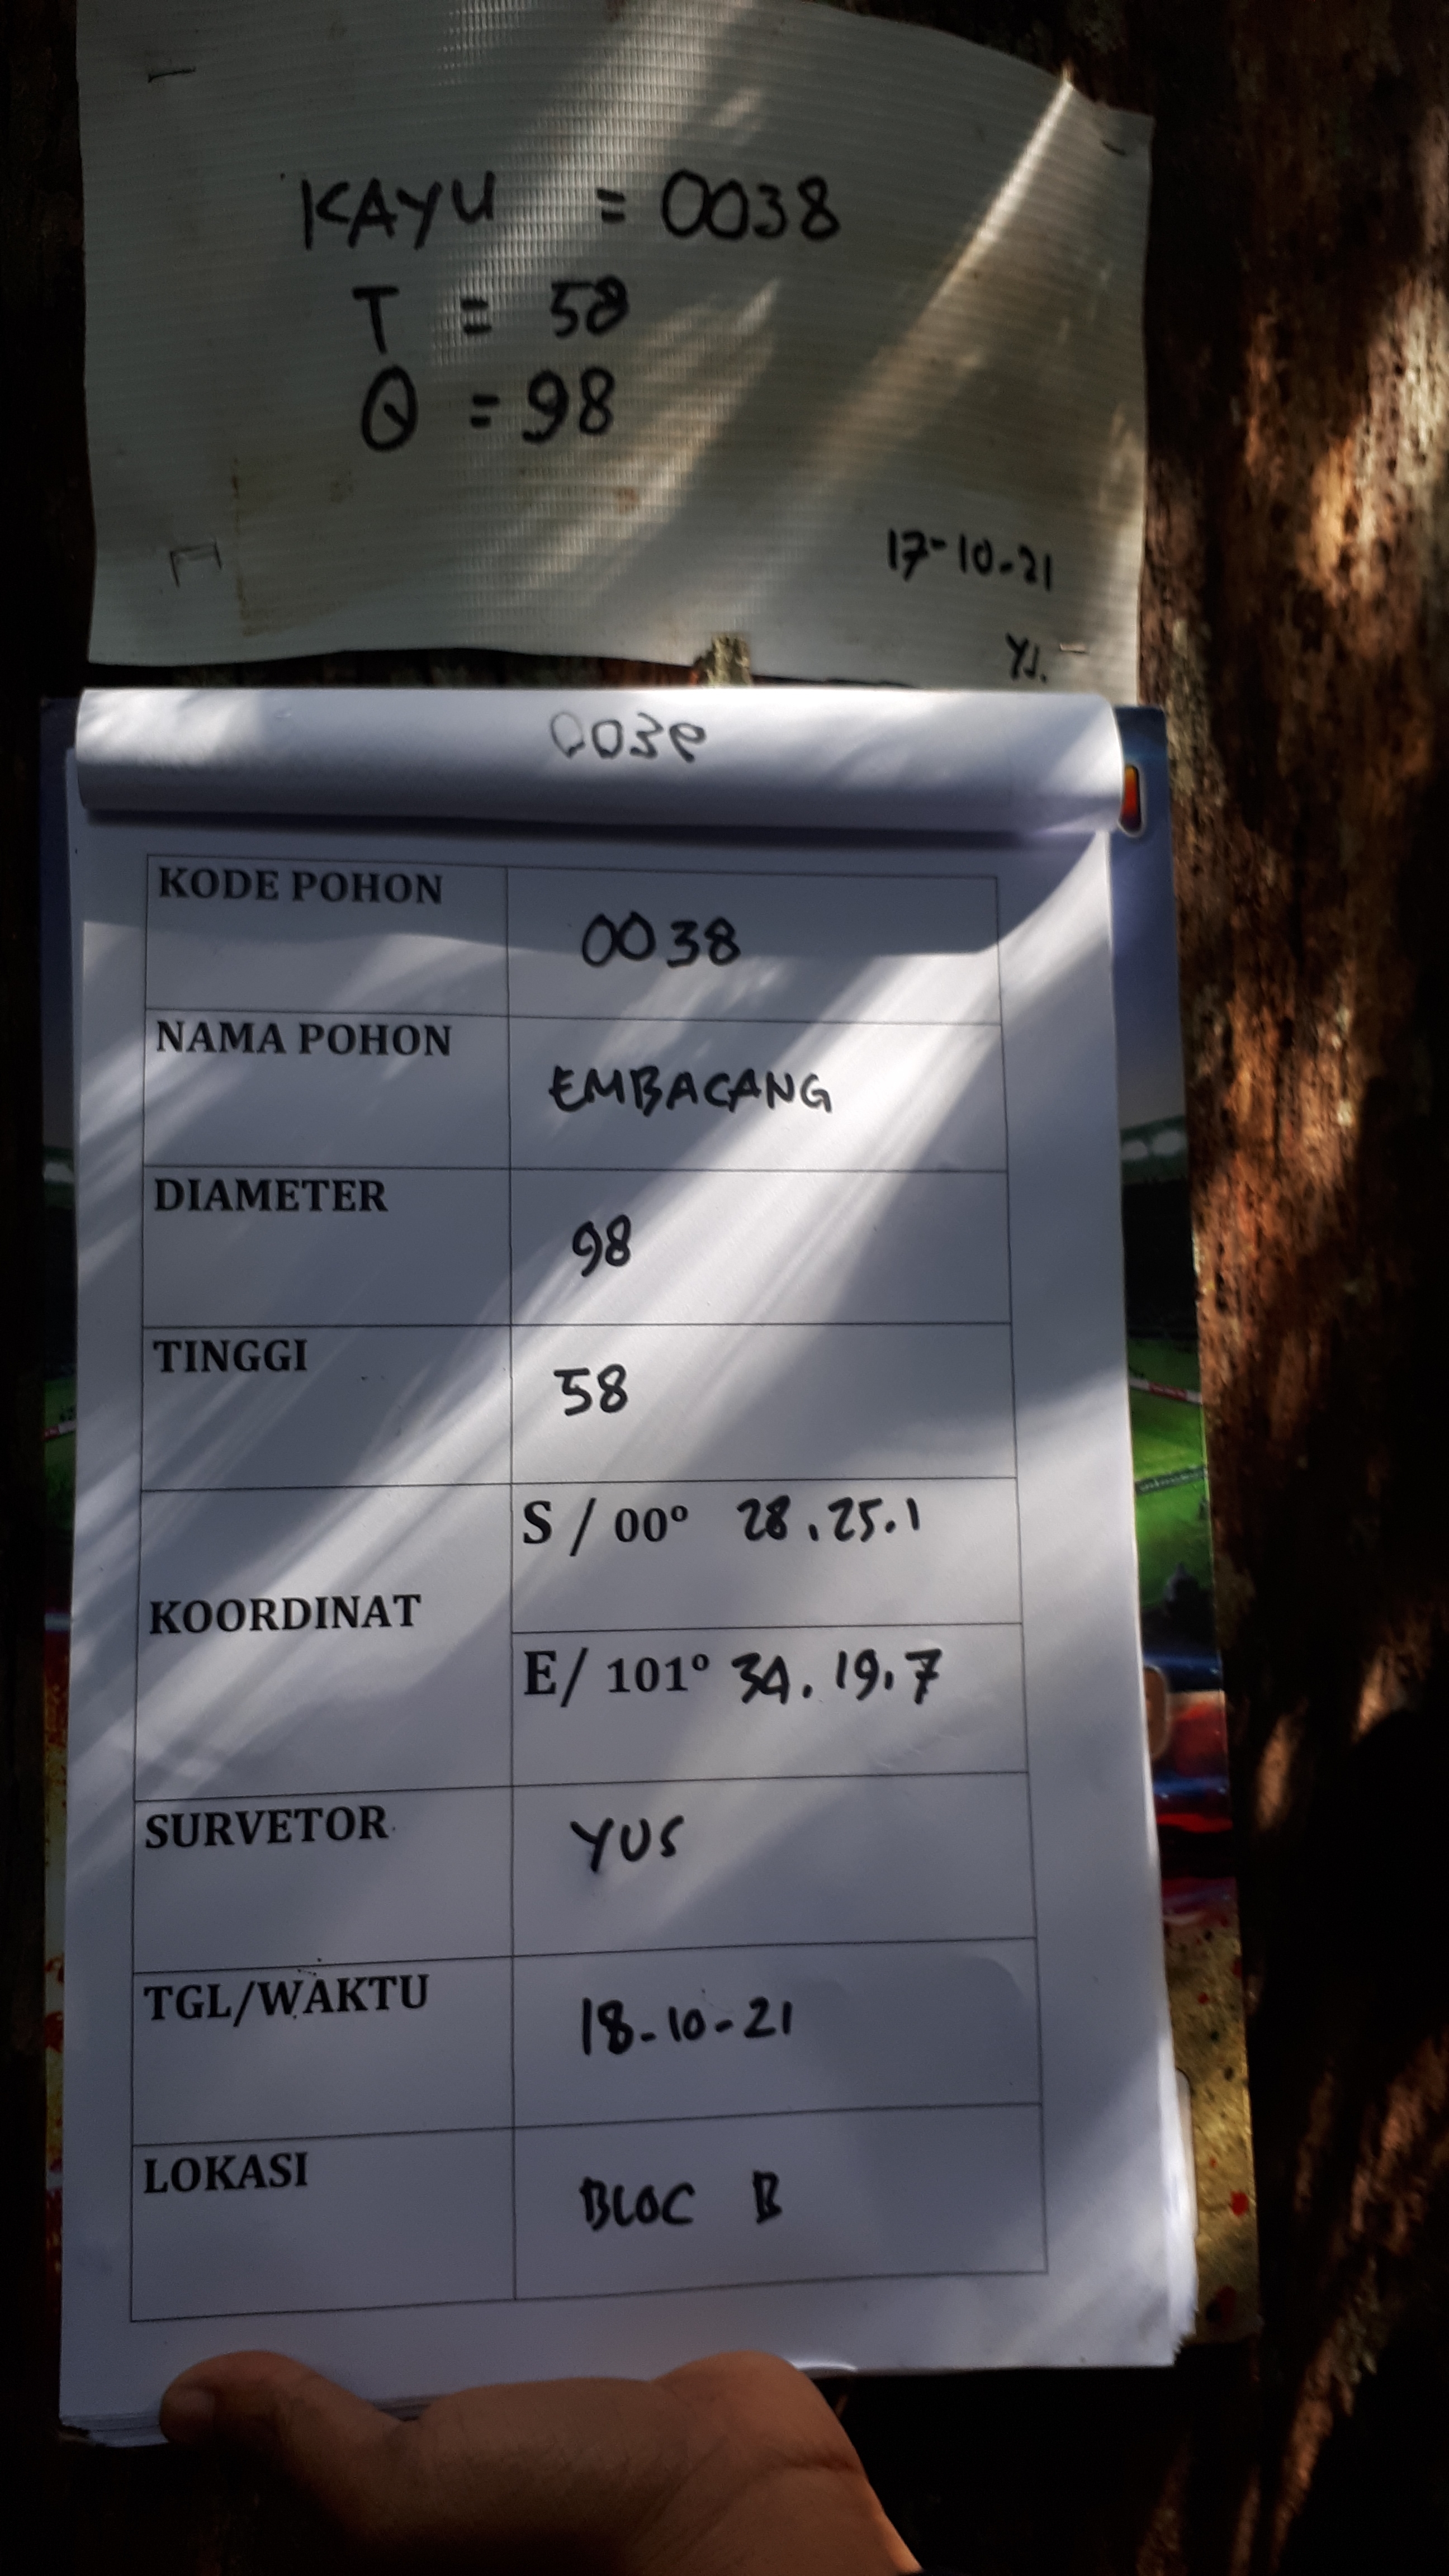 KAYU = 0038
T = 58
Q = 98
17-10-21
YJ.
KODE POHON 0038
NAMA POHON EMBACANG
DIAMETER 98
TINGGI 58
KOORDINAT S / 00° 28.25.1
E/ 101° 34.19.7
SURVETOR YUS
TGL/WAKTU 18-10-21
LOKASI BLOC B